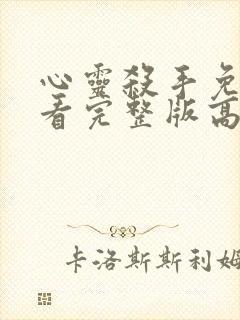 心靈殺手免
看完整版高
卡洛斯斯利姆